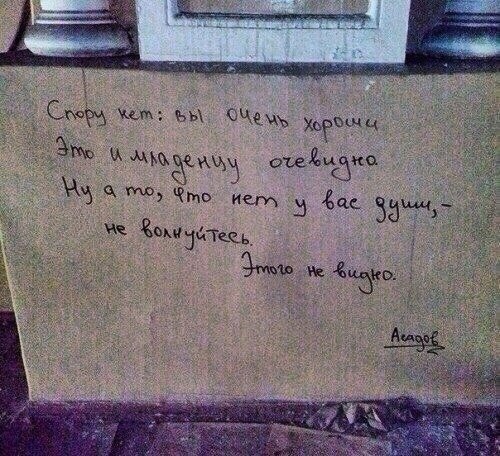 Спору нет: вы очень хороши
Это и младенцу очевидно
Ну а то, что нет у вас души,-
не волнуйтесь.
Этого не видно.
Асадов